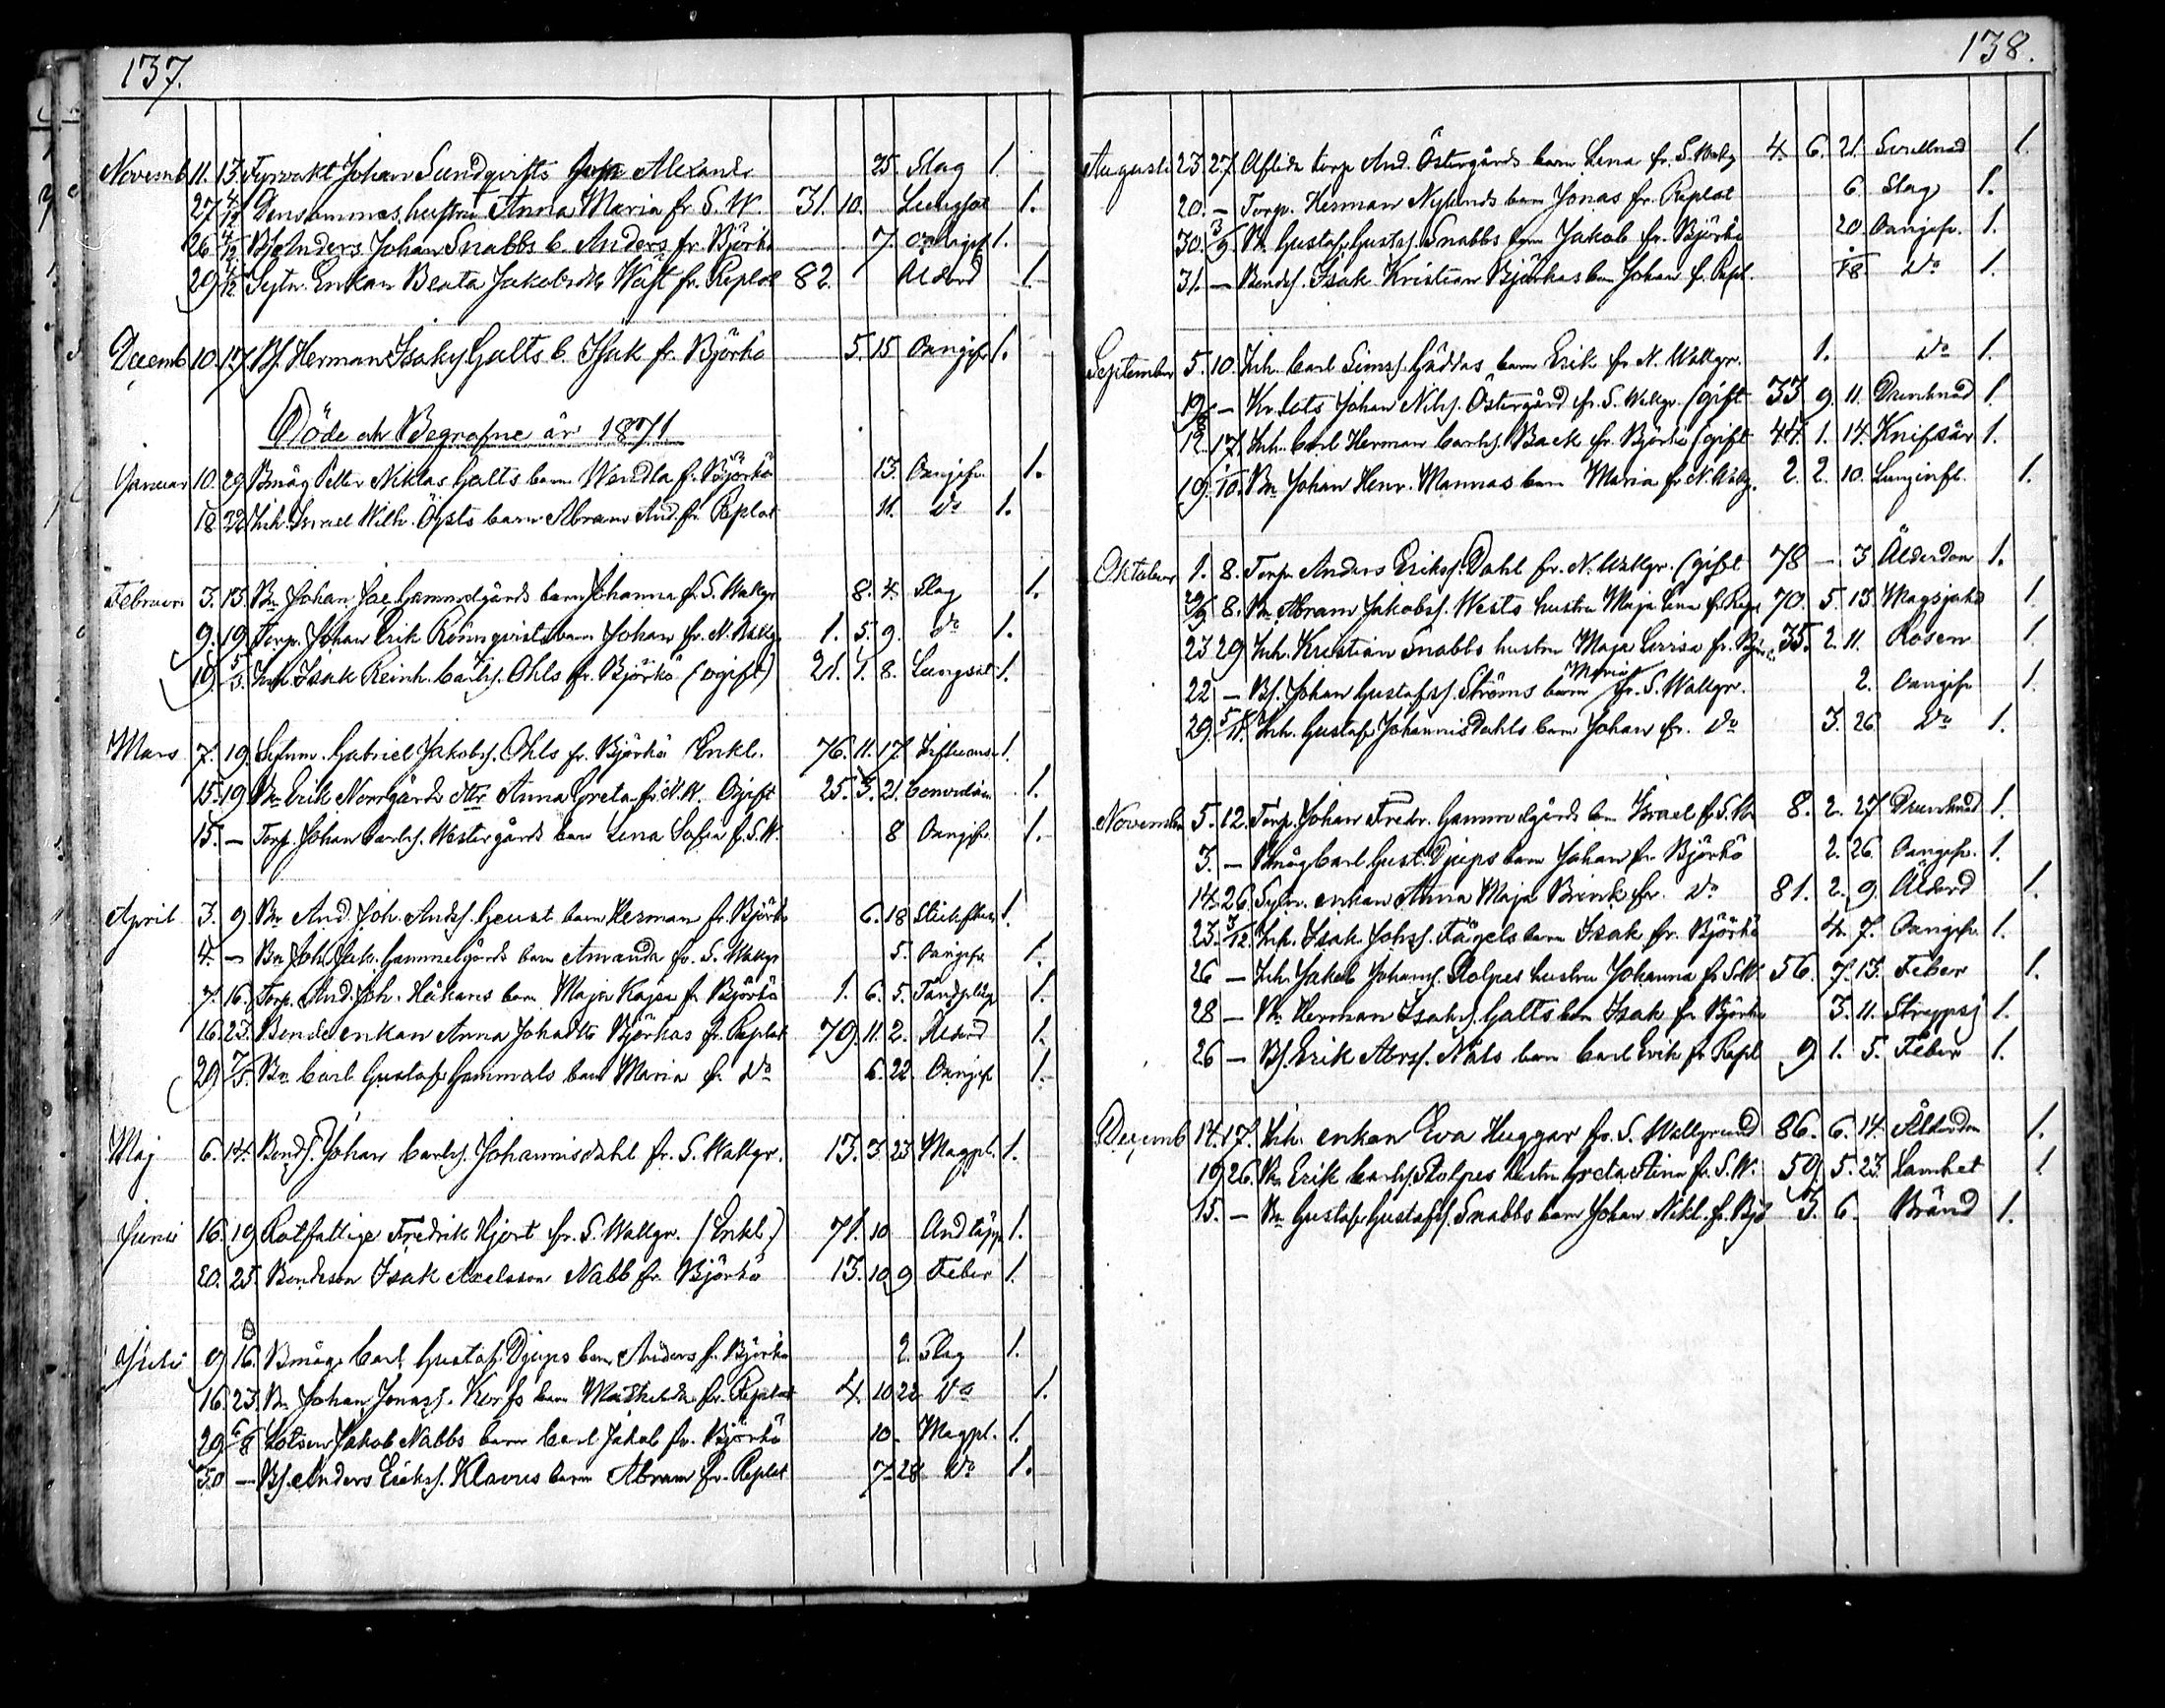 137.
Novemb 11. 13. Fyrvakt Johan Sundqvists Alexand. 25. Slag 1.
27. 4/12 Densammes hustru Anna Maria fr. S. W. 31. 10. Lungsot 1.
26 4/12 Bs Anders Johan Snabbs b. Anders fr. Björkö 7. Oangif 1.
29 4/12 Sytn. Enkan Beata Jakobsdtr Wäst fr. Replot 82. Ålderd 1.
Decemb 10. 17. Bs. Herman Isaks. Galts b. Isak fr. Björkö 5. 15 Oangifv 1.
Döde och Begrafne år 1871
Januar 10. 29. Bmåg Petter Niklas Galts barn Wendla fr. Björkö 13. Oangifv. 1.
18. 22. Inh. Israel Wilh. Östs barn Abram And. fr. Replot 11. Do 1.
Februari 3. 13. Bn Johan Jac. Gammelgårds barn Johanna fr. S. Wallgr 8. 4. Slag 1.
9. 19. Torp. Johan Erik Rönnqvists barn Johan fr. N. Wallg. 1. 5. 9. Do 1.
19. 5/3. Inh. Isak Reinh. Carls. Ohls fr. Björkö (ogift) 21. 1. 8. Lungsot 1.
Mars 7. 19. Sytnm. Gabriel Jakobs. Ohls fr. Björkö Enkl. 76. 11. 17. 1.
15. 19. Bn Erik Norrgårds dttr Anna Greta fr. N. W. Ogift 25. 3. 21. 1.
15. — Torp. Johan Carls. Westergårds barn Lena Sofia f. S. W. 8 Oangifv. 1.
April 3. 9. Bn And. Joh. Anders. Geust barn Herman fr. Björkö 6. 18 1.
4. — Bn Joh. Jak. Gammelgårds barn Amanda fr. S. Wallgr 5. Oangifv. 1.
7. 16. Torp. And. Joh. Håkans barn Maja Kajsa fr Björkö 1. 6. 5. Tandplåg 1.
16. 23. Bonde enkan Anna Johadtr Björkas fr. Replot 79. 11. 2. Ålderd 1.
29. 7/5. Bn Carl Gustaf Gammals barn Maria fr. Do 6. 22. Oangifv 1.
Maj 6. 14. Bonds. Johan Carls. Johannisdahl fr. S. Wallgr. 13. 3. 23. Magpl. 1.
Juni 16. 19. Rotfattige Fredrik Hjort fr. S. Wallgr. (Enkl.) 71. 10 Andtäpp 1.
20. 25. Bondeson Isak Axelsson Nabb fr. Björkö 13. 10. 9 Feber 1.
Juli 9 16. Bmåg. Carl Gustaf Djups barn Anders fr. Björkö 2. Slag 1.
16. 23. Bn Johan Jonass. Korfs barn Mathilda fr. Replot 4. 10 22 Do 1.
29. 6/8 Lotsen Jakob Nabbs barn Carl Jakob fr. Björkö 10 - Magpl. 1.
30 — Bs. Anders Eriks. Klavus barn Abram fr. Replot 7. 28 Do 1.
138.
Augusti 23 27. Aflidn torp And. Östergårds barn Lena fr. S. Wallg 4. 6. 21. Svullnad 1.
20. — Torp. Herman Nylunds barn Jonas fr. Replot 6. Slag 1.
30. 3/9 Bn Gustaf Gustafs. Snabbs barn Jakob fr. Björkö 20. Oangifv. 1.
31. — Bonds. Isak Kristian Björkas barn Johan fr. Repl. 18. Do 1.
September 5. 10. Inh. Carl Simss. Gäddas barn Erik fr. N. Wallgr. 1. Do 1.
19/8 — Kr. lots Johan Nils. Östergård fr. S. Wallgr. (gift 33 9. 11. Drunknad 1.
12. 17. Inh. Carl Herman Carls. Back fr. Björkö (gift 44. 1. 14. Knifsår 1.
19. 1/10. Bn Johan Henr. Mannas barn Maria fr. N. Wallg. 2. 2. 10. Lunginfl. 1.
Oktober 1. 8. Torp. Anders Eriks. Dahl fr. N. Wallgr. (gift 78 — 3 Ålderdom 1.
29/9 8. Bn Abram Jakobs. Wests hustru Maja Lena fr. Repl 70. 5. 13. Magsjukd 1.
23 29 Inh. Kristian Snabbs hustru Maja Lovisa fr. Björk. 35. 2. 11. Rosen 1.
22 — Bs. Johan Gustafs. Ströms barn Maria fr. S. Wallgr. 2. Oangifv 1.
29. 5/11. Inh. Gustaf Johannisdahls barn Johan fr. Do 3. 26 Do 1.
November 5. 12. Torp. Johan Fredr. Gammelgårds bn Israel fr. S. W 8. 2. 27 Drunknad 1.
3. — Bmåg Carl Gust. Djups barn Johan fr Björkö 2. 26. Oangifv. 1.
14. 26. Sytn. enkan Anna Maja Brink fr. Do 81. 2. 9. Ålderd 1.
23. 3/12. Inh. Isak Johss. Fågels barn Isak fr. Björkö 4. 7. Oangifv. 1.
26 — Inh. Jakob Johans. Stolpes hustru Johanna fr S. W. 56. 7. 13. Feber 1.
28 — Bn. Herman Isaks. Galts barn Isak fr Björkö 3. 11. Strypsj 1.
26 — Bs. Erik Abrs. Nåls barn Carl Erik fr Repl 9 1. 5. Feber 1.
Decemb 14. 17. Inh. enkan Eva Huggar fr. S. Wallgrund 86. 6. 14. Ålderdom 1.
19 26. Bn Erik Carls. Stolpes hustru Greta Stina fr. S. W. 59. 5. 23. Lamhet 1
15. — Bn Gustaf Gustafs. Snabbs barn Johan Nikl. fr. Bjö 3. 6. Bränd 1.